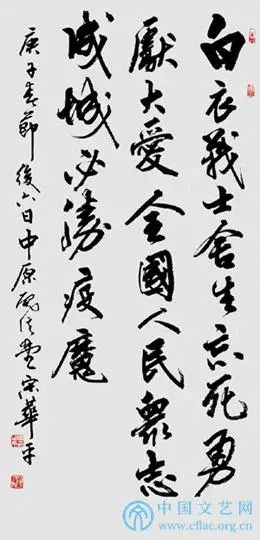 白衣義士舍生忘死勇
獻大愛全國人民眾志
成城必勝疫魔
庚子春節後六日中原宋華平
中国文艺网
www.cflac.org.cn